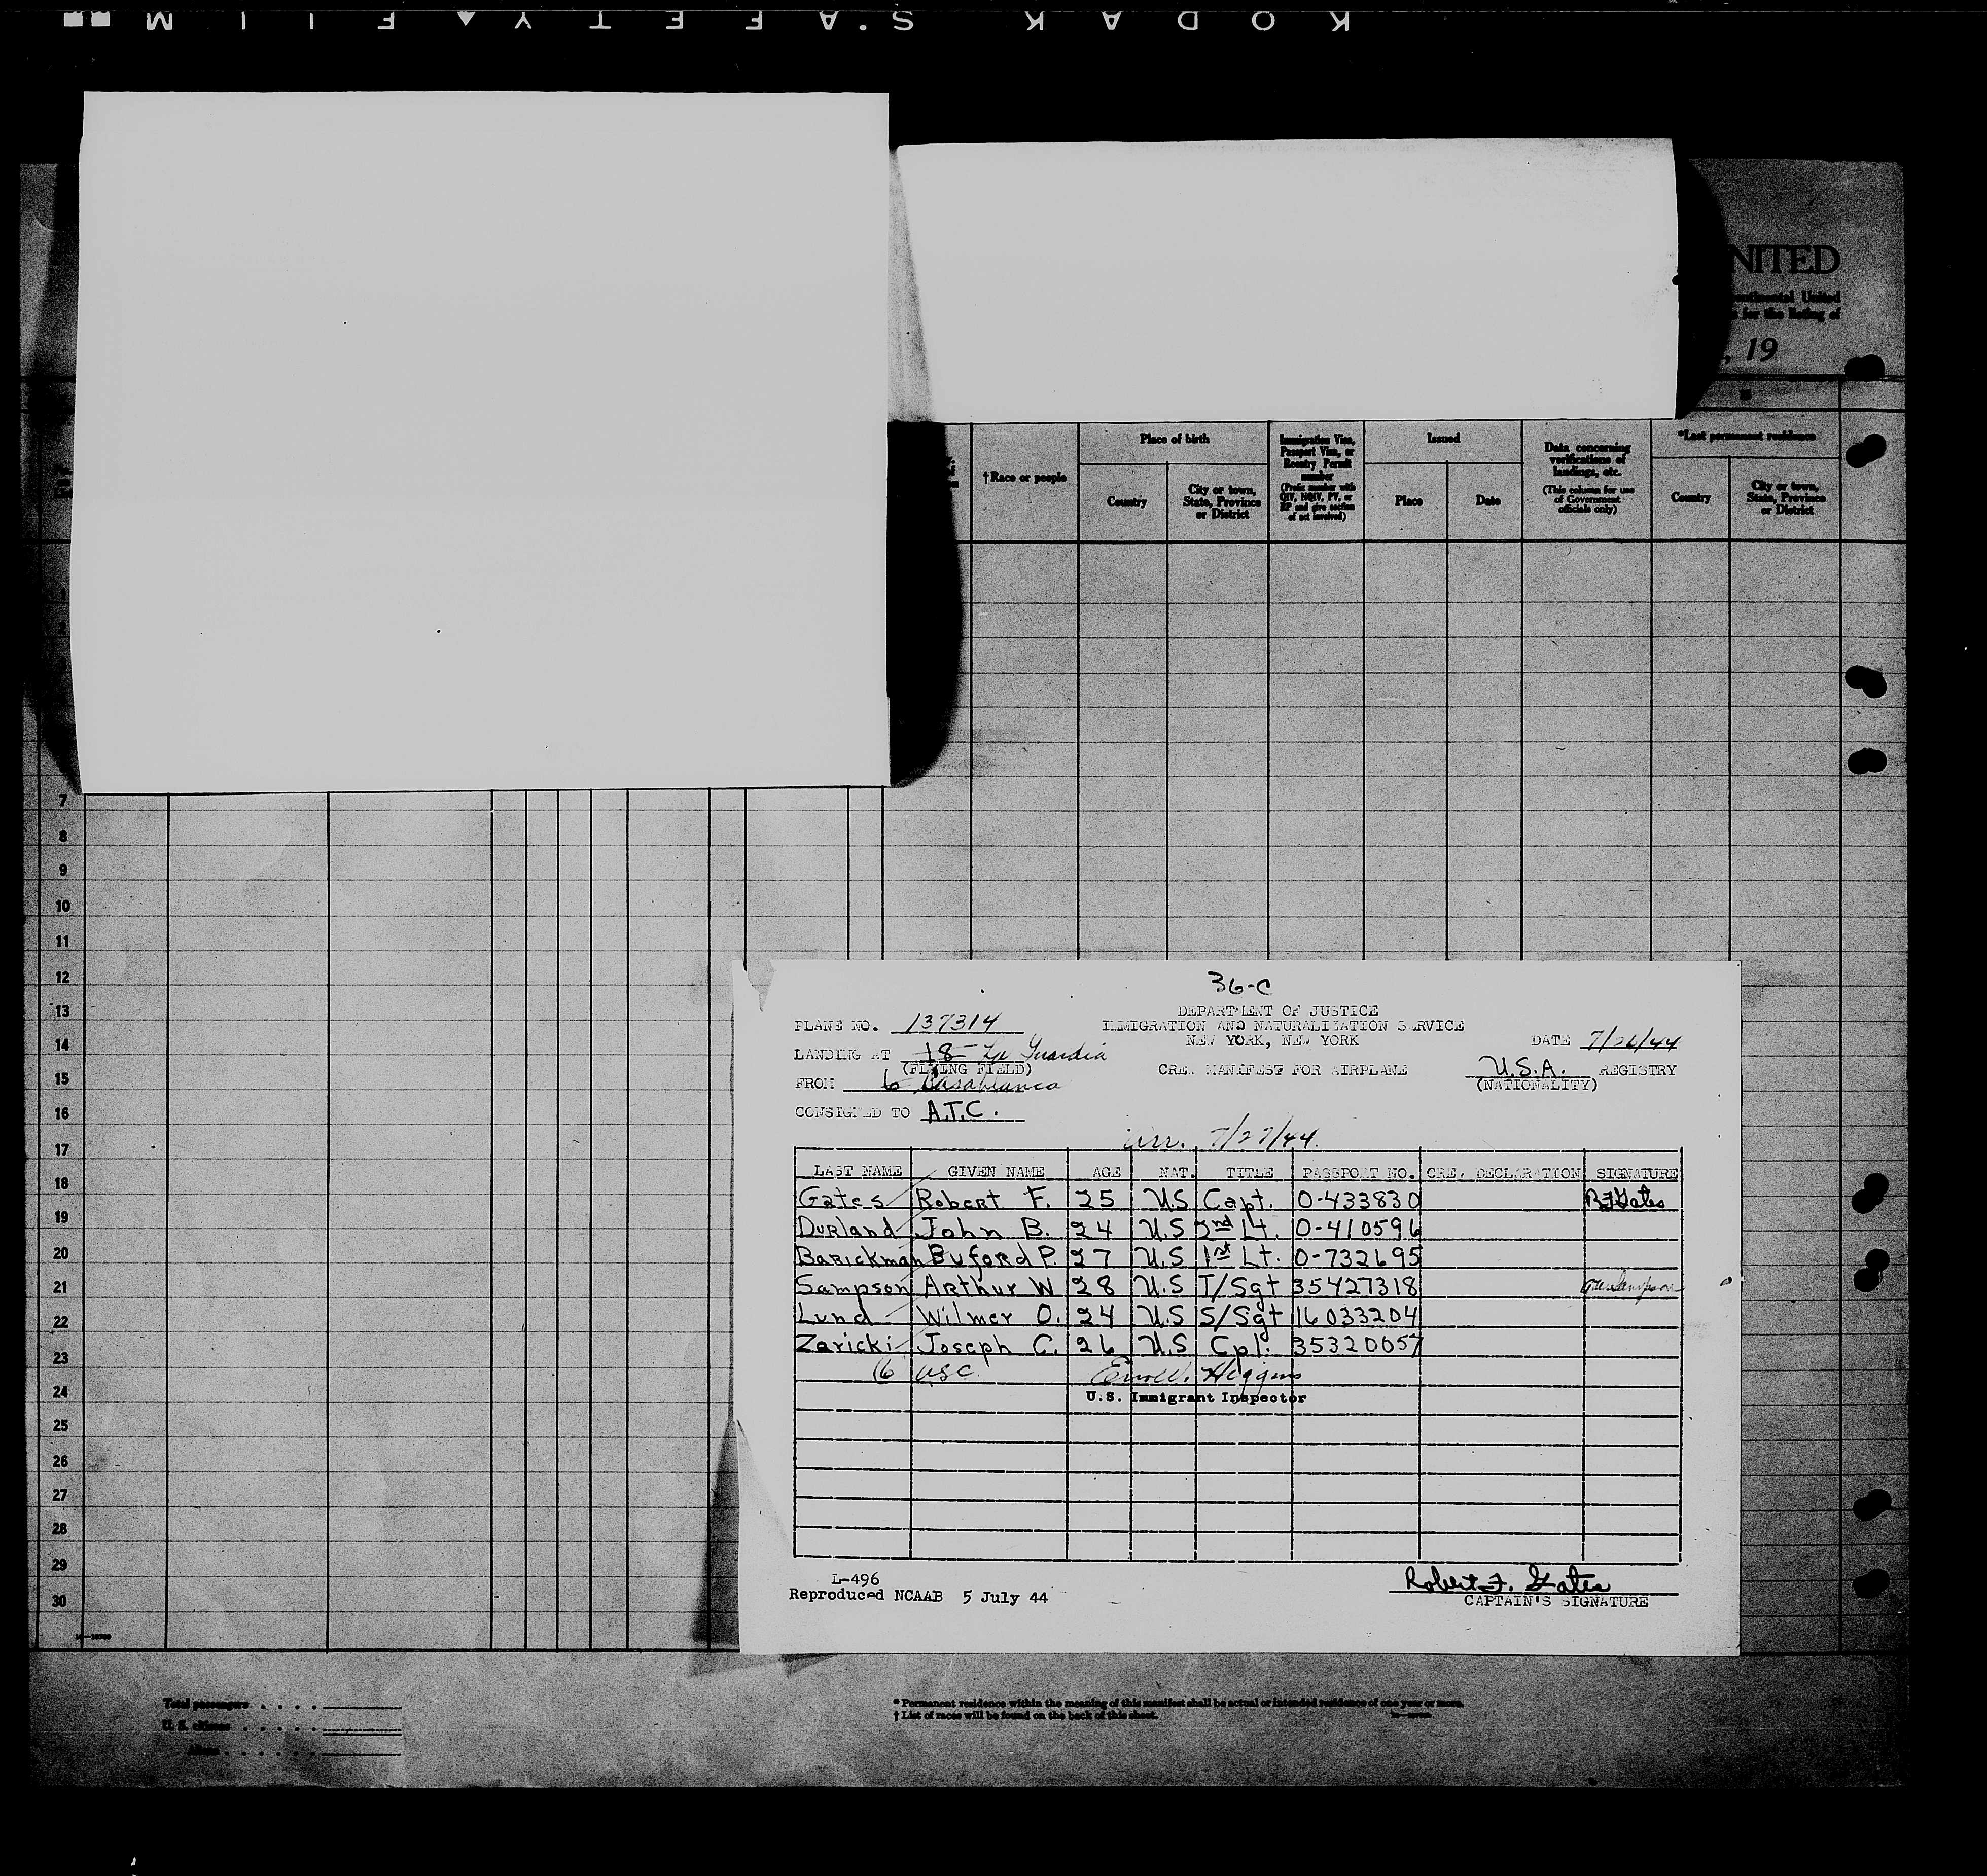 KODAK SAFETY FILM
NITED
ontinental United
for the listing of
, 19
† Race or people
Place of birth
Country
City or town, State, Province or District
Immigration Visa, Passport Visa, or Reentry Permit number
(Prefix number with QIV, NQIV, PV, or RP and give section of act involved)
Issued
Place
Date
Data concerning verifications of landings, etc.
(This column for use of Government officials only)
*Last permanent residence
Country
City or town, State, Province or District
7
8
9
10
11
12
13
14
15
16
17
18
19
20
21
22
23
24
25
26
27
28
29
30
36-C
DEPARTMENT OF JUSTICE
IMMIGRATION AND NATURALIZATION SERVICE
NEW YORK, NEW YORK
PLANE NO. 137314
DATE 7/26/44
LANDING AT 18 La Guardia
(FLYING FIELD)
CREW MANIFEST FOR AIRPLANE
U.S.A. REGISTRY
(NATIONALITY)
FROM 6 Casablanca
CONSIGNED TO A.T.C.
arr. 7/27/44
LAST NAME GIVEN NAME AGE NAT. TITLE PASSPORT NO. CREW DECLARATION SIGNATURE
Gates Robert F. 25 U.S Capt. O-433830 R F Gates
Durland John B. 24 U.S 2nd Lt. O-410596
Barickman Buford P. 27 U.S 1st Lt. O-732695
Sampson Arthur W 28 U.S T/Sgt 35427318
Lund Wilmer O. 24 U.S S/Sgt 16033204
Zaricki Joseph C. 26 U.S Cpl. 35320057
6 USC Higgins
U.S. Immigrant Inspector
L-496
Reproduced NCAAB 5 July 44
Robert F. Gates
CAPTAIN'S SIGNATURE
Total passengers . . . .
U. S. citizens . . . . .
Aliens . . . . . .
* Permanent residence within the meaning of this manifest shall be actual or intended residence of one year or more.
† List of races will be found on the back of this sheet.